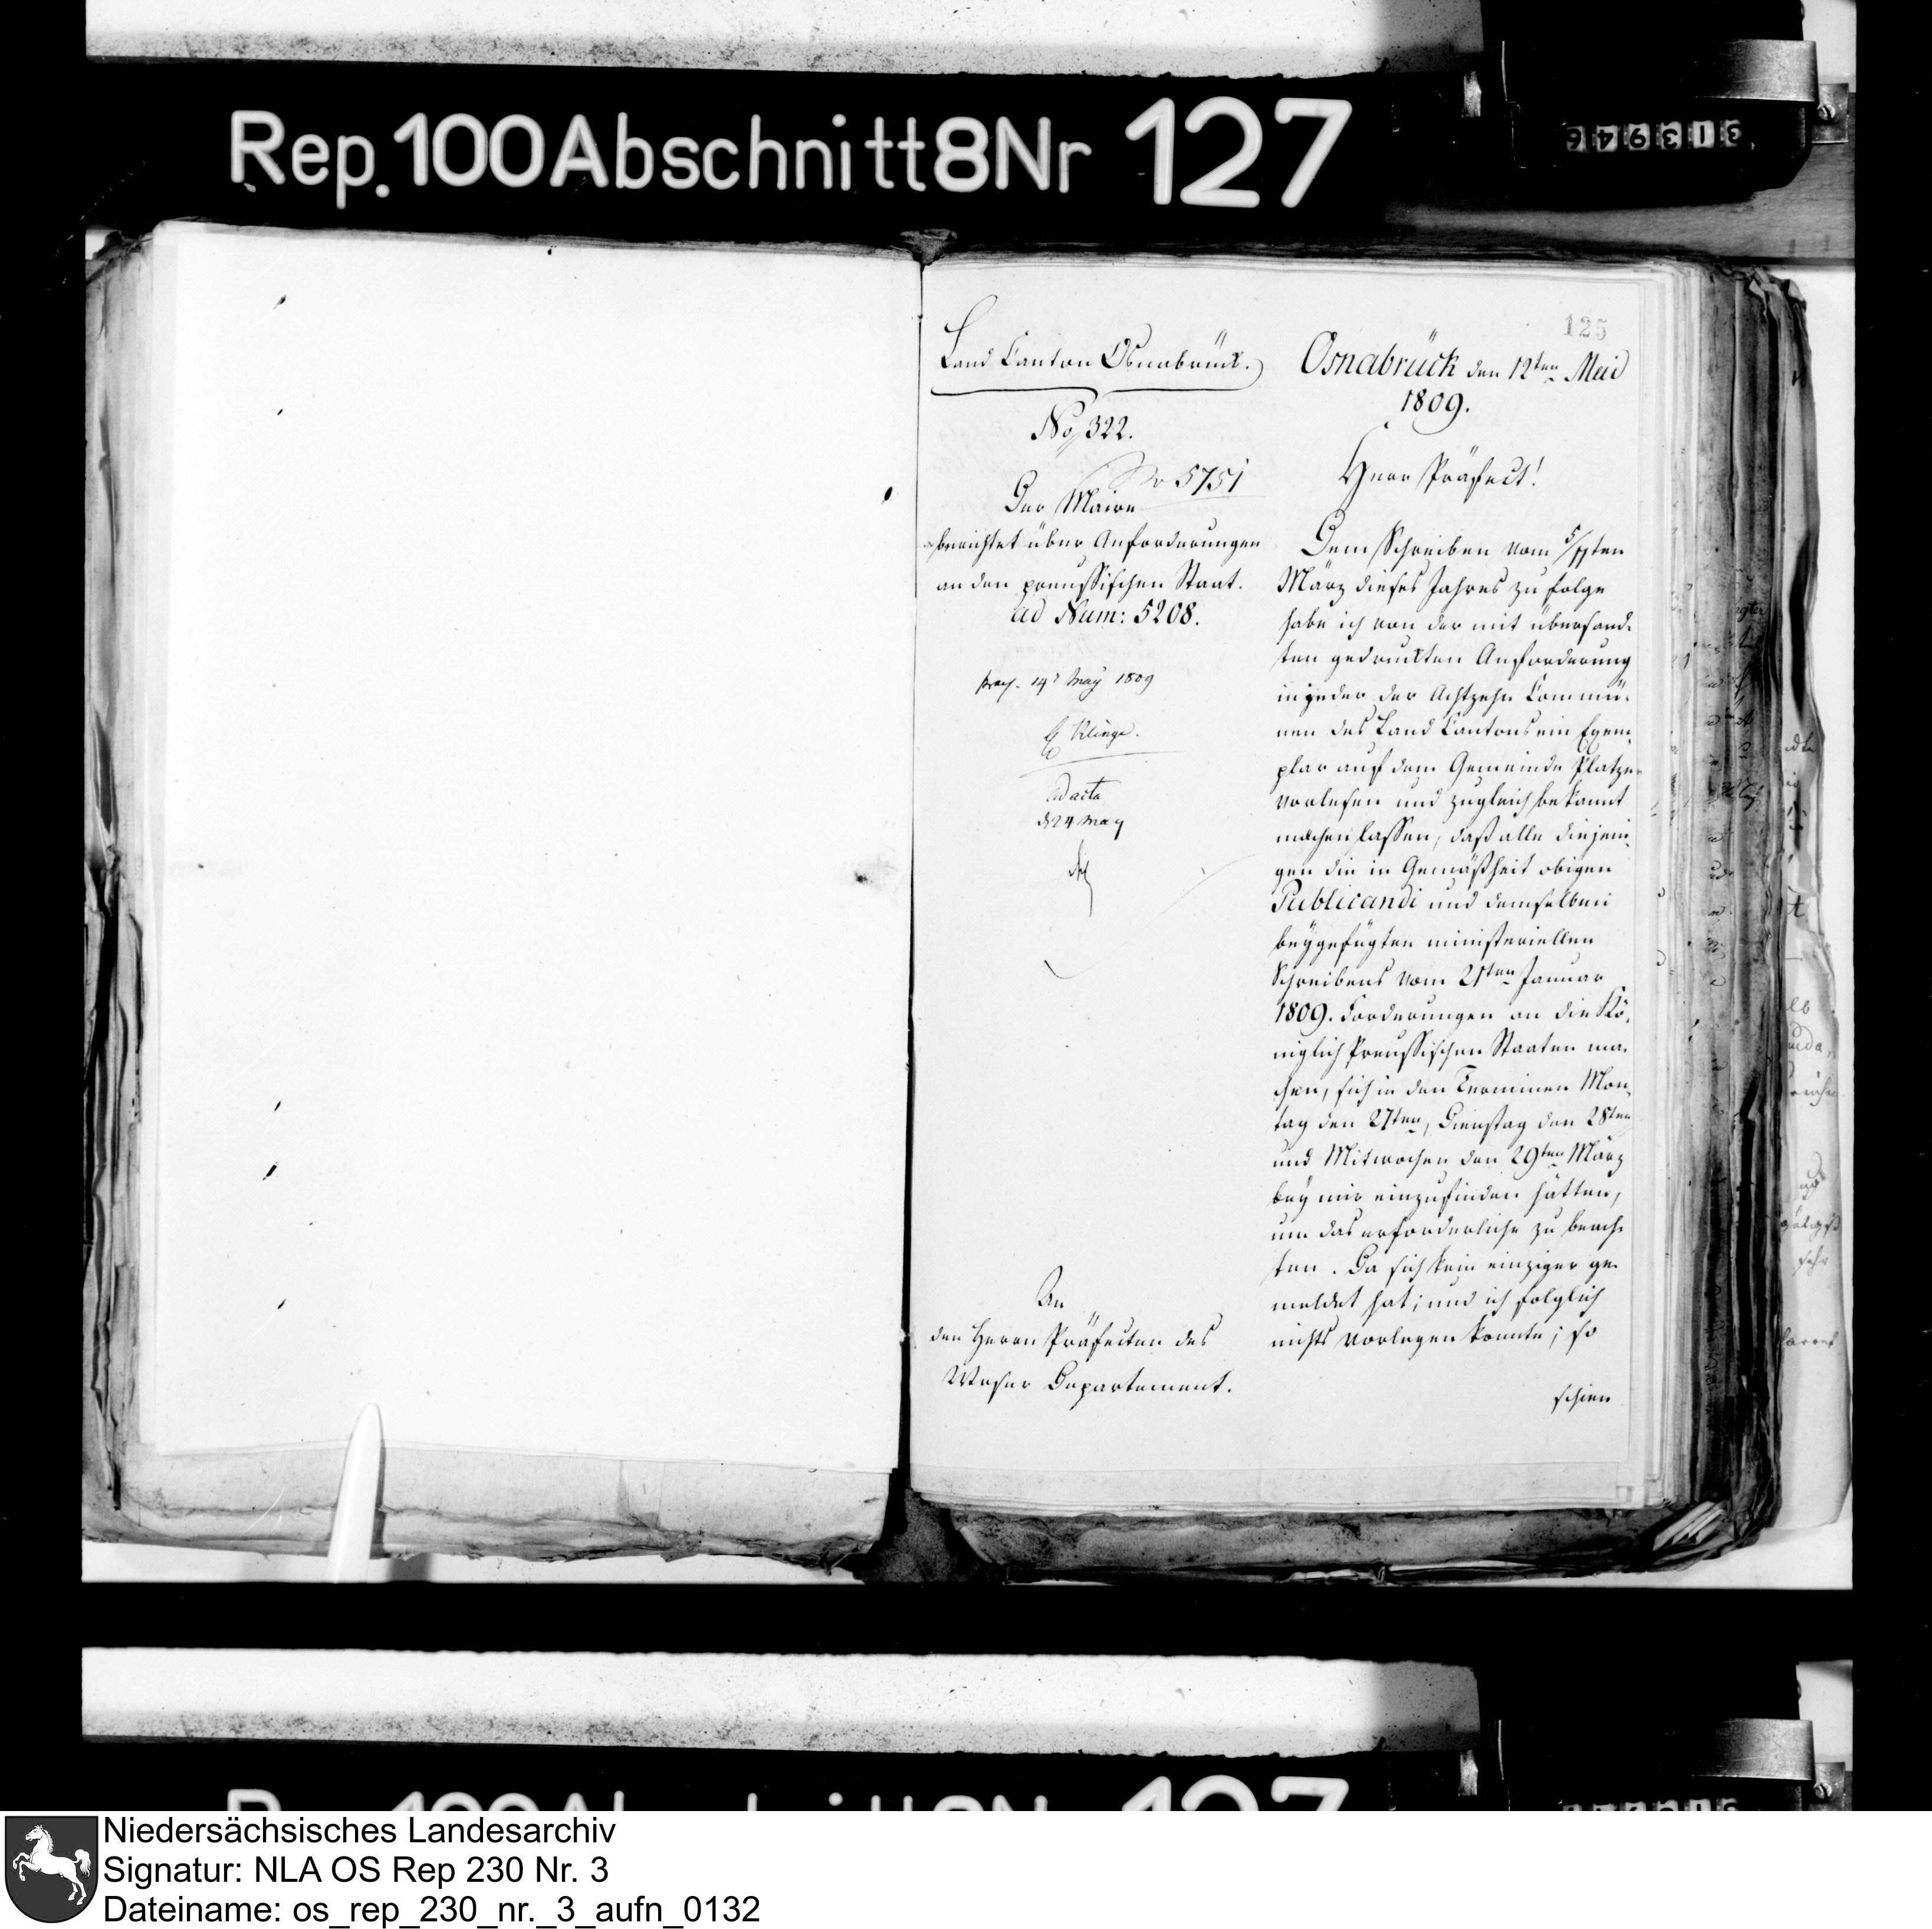 Rep. 100 Abschnitt 8 Nr 127
313946
125
Land Canton Osnabrück.
No 322.
No 5751
Der Maire
berichtet über Anforderungen
an den preussischen Staat.
ad Num: 5208.
14 May 1809
Klinge.
ad acta
d 24 May
An
den Herrn Präfecten des
Weser Departement.
Osnabrück den 12ten Mai
1809.
Herr Präfect!
Dem Schreiben vom 5/11ten
März dieses Jahres zu folge
habe ich von der mit übersand-
ten gedruckten Aufforderung
in jeder der Achtzehn Commü-
nen des Land Cantons ein Exem-
plar auf dem Gemeinde Platze
vorlesen und zugleich bekannt
machen lassen, daß alle diejeni-
gen die in Gemäßheit obigen
Publicandi und demselben
beygefügten ministeriellen
Schreibens vom 21ten Januar
1809. Forderungen an die Kö-
niglich Preussischen Staaten ma-
chen, sich in den Terminen Mon-
tag den 27ten, Dienstag den 28ten
und Mitwochen den 29ten März
bey mir einzufinden hätten,
um das erforderliche zu beach-
ten. Da sich kein einziger ge-
meldet hat; und ich folglich
nichts vorlegen konnte; so
schien
Niedersächsisches Landesarchiv
Signatur: NLA OS Rep 230 Nr. 3
Dateiname: os_rep_230_nr._3_aufn_0132